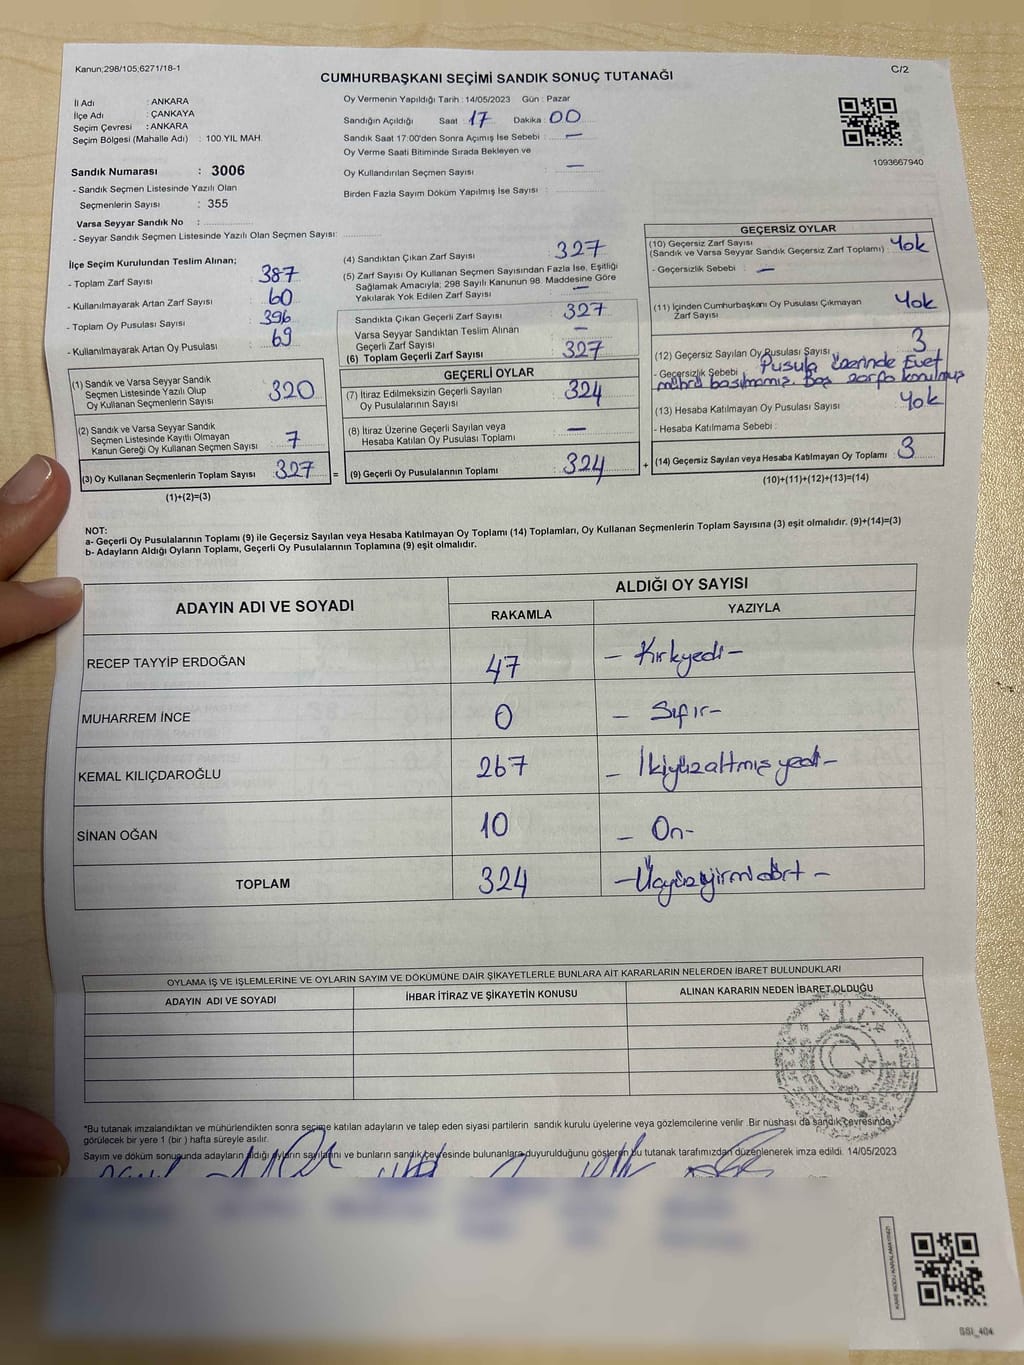 Kanun;298/105;6271/18-1
C/2
CUMHURBAŞKANI SEÇİMİ SANDIK SONUÇ TUTANAĞI
İl Adı : ANKARA
İlçe Adı : ÇANKAYA
Seçim Çevresi : ANKARA
Seçim Bölgesi (Mahalle Adı) : 100.YIL MAH.
Sandık Numarası : 3006
- Sandık Seçmen Listesinde Yazılı Olan
Seçmenlerin Sayısı : 355
Varsa Seyyar Sandık No :
- Seyyar Sandık Seçmen Listesinde Yazılı Olan Seçmen Sayısı:
Oy Vermenin Yapıldığı Tarih : 14/05/2023 Gün : Pazar
Sandığın Açıldığı Saat : 17 Dakika : 00
Sandık Saat 17:00'den Sonra Açımış İse Sebebi : —
Oy Verme Saati Bitiminde Sırada Bekleyen ve
Oy Kullandırılan Seçmen Sayısı : —
Birden Fazla Sayım Döküm Yapılmış İse Sayısı :
1093667940
İlçe Seçim Kurulundan Teslim Alınan;
- Toplam Zarf Sayısı : 387
- Kullanılmayarak Artan Zarf Sayısı : 60
- Toplam Oy Pusulası Sayısı : 396
- Kullanılmayarak Artan Oy Pusulası : 69
(1) Sandık ve Varsa Seyyar Sandık
Seçmen Listesinde Yazılı Olup
Oy Kullanan Seçmenlerin Sayısı : 320
(2) Sandık ve Varsa Seyyar Sandık
Seçmen Listesinde Kayıtlı Olmayan
Kanun Gereği Oy Kullanan Seçmen Sayısı : 7
(3) Oy Kullanan Seçmenlerin Toplam Sayısı : 327 =
(1)+(2)=(3)
(4) Sandıktan Çıkan Zarf Sayısı : 327
(5) Zarf Sayısı Oy Kullanan Seçmen Sayısından Fazla İse, Eşitliği
Sağlamak Amacıyla; 298 Sayılı Kanunun 98. Maddesine Göre
Yakılarak Yok Edilen Zarf Sayısı : —
Sandıkta Çıkan Geçerli Zarf Sayısı : 327
Varsa Seyyar Sandıktan Teslim Alınan
Geçerli Zarf Sayısı : —
(6) Toplam Geçerli Zarf Sayısı : 327
GEÇERLİ OYLAR
(7) İtiraz Edilmeksizin Geçerli Sayılan
Oy Pusulalarının Sayısı : 324
(8) İtiraz Üzerine Geçerli Sayılan veya
Hesaba Katılan Oy Pusulası Toplamı : —
(9) Geçerli Oy Pusulalarının Toplamı : 324 +
GEÇERSİZ OYLAR
(10) Geçersiz Zarf Sayısı
(Sandık ve Varsa Seyyar Sandık Geçersiz Zarf Toplamı) : Yok
- Geçersizlik Sebebi : —
(11) İçinden Cumhurbaşkanı Oy Pusulası Çıkmayan
Zarf Sayısı : Yok
(12) Geçersiz Sayılan Oy Pusulası Sayısı : 3
- Geçersizlik Sebebi : Pusula üzerinde Evet
mührü basılmamış. Boş zarfa konulmuş
(13) Hesaba Katılmayan Oy Pusulası Sayısı : Yok
- Hesaba Katılmama Sebebi :
(14) Geçersiz Sayılan veya Hesaba Katılmayan Oy Toplamı : 3
(10)+(11)+(12)+(13)=(14)
NOT:
a- Geçerli Oy Pusulalarının Toplamı (9) ile Geçersiz Sayılan veya Hesaba Katılmayan Oy Toplamı (14) Toplamları, Oy Kullanan Seçmenlerin Toplam Sayısına (3) eşit olmalıdır. (9)+(14)=(3)
b- Adayların Aldığı Oyların Toplamı, Geçerli Oy Pusulalarının Toplamına (9) eşit olmalıdır.
ADAYIN ADI VE SOYADI
ALDIĞI OY SAYISI
RAKAMLA YAZIYLA
RECEP TAYYİP ERDOĞAN 47 – Kırkyedi –
MUHARREM İNCE 0 – Sıfır –
KEMAL KILIÇDAROĞLU 267 – İkiyüzaltmışyedi –
SİNAN OĞAN 10 – On –
TOPLAM 324 – Üçyüzyirmidört –
OYLAMA İŞ VE İŞLEMLERİNE VE OYLARIN SAYIM VE DÖKÜMÜNE DAİR ŞİKAYETLERLE BUNLARA AİT KARARLARIN NELERDEN İBARET BULUNDUKLARI
ADAYIN ADI VE SOYADI İHBAR İTİRAZ VE ŞİKAYETİN KONUSU ALINAN KARARIN NEDEN İBARET OLDUĞU
T.C.
*Bu tutanak imzalandıktan ve mühürlendikten sonra seçime katılan adayların ve talep eden siyasi partilerin sandık kurulu üyelerine veya gözlemcilerine verilir .Bir nüshası da sandık çevresinde
görülecek bir yere 1 (bir ) hafta süreyle asılır.
Sayım ve döküm sonugunda adayların aldığı oyların sayılarını ve bunların sandık çevresinde bulunanlara duyurulduğunu gösteren bu tutanak tarafımızdan düzenlenerek imza edildi. 14/05/2023
KARE KODU KARALAMAYINIZ!
SSI_404